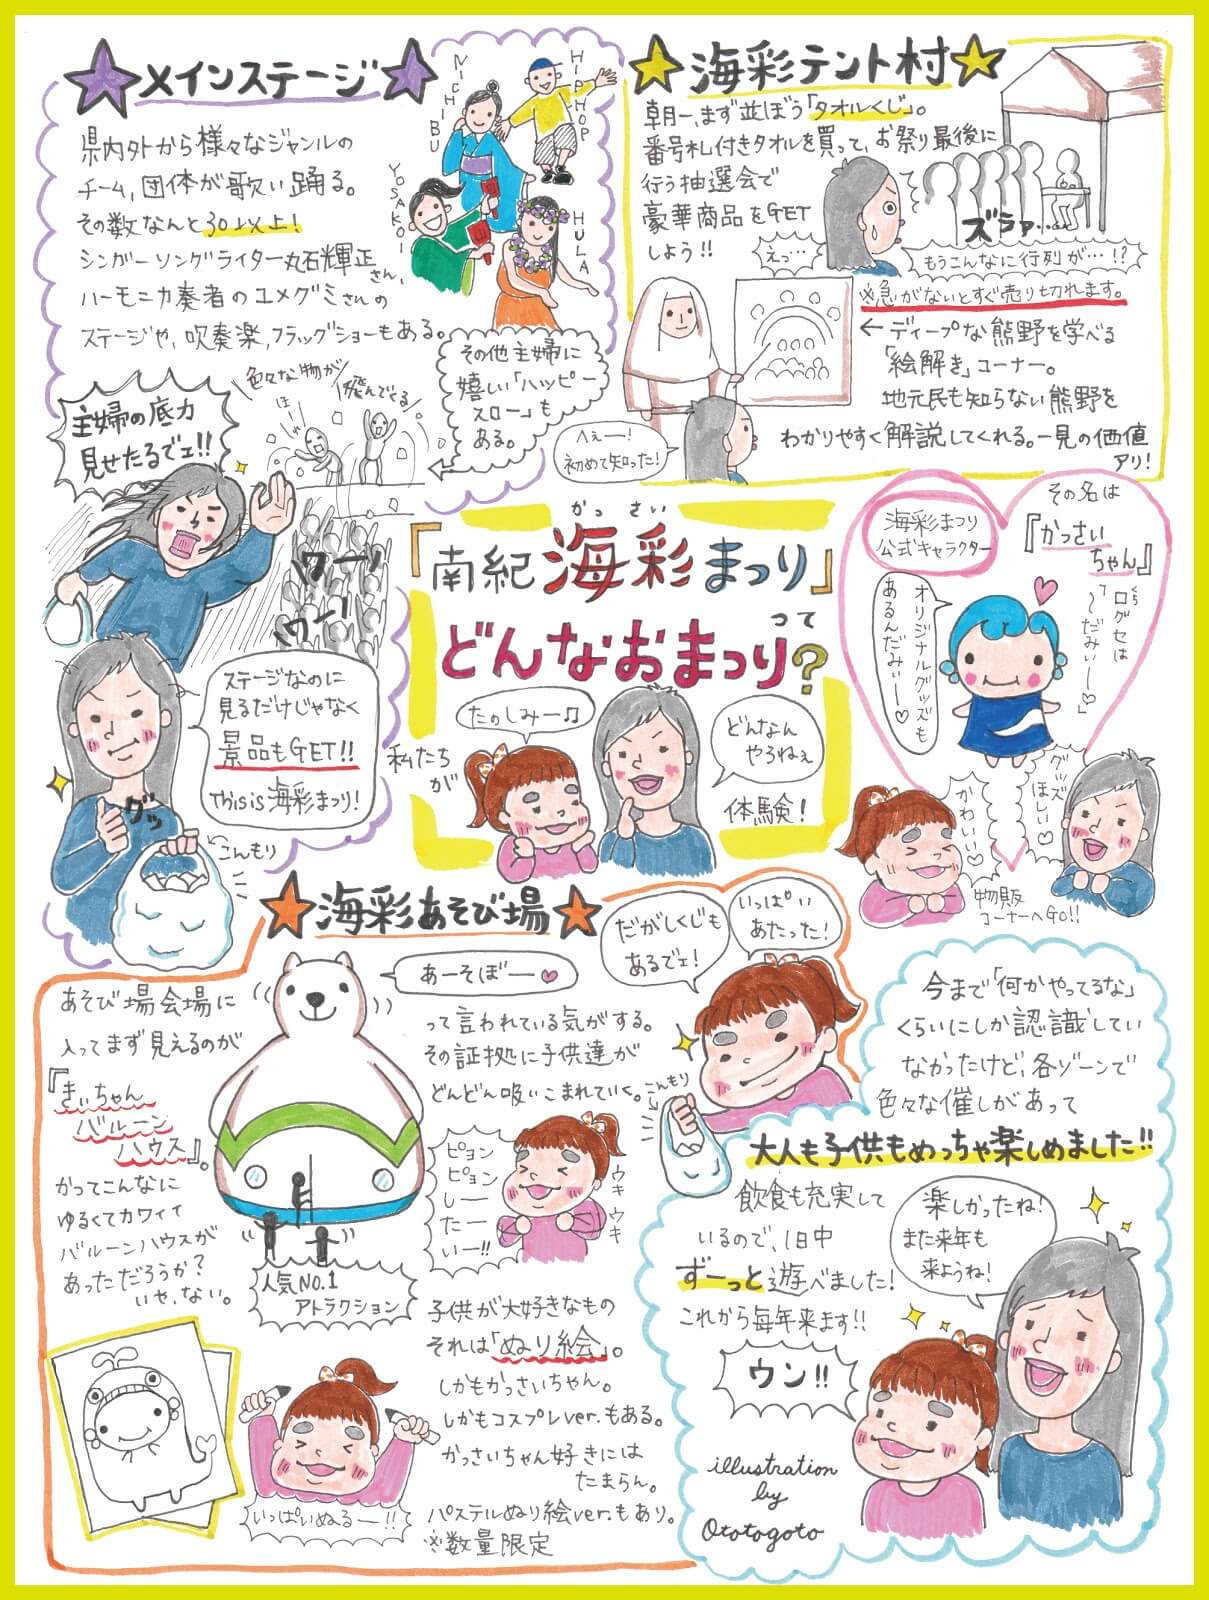 メインステージ
県内外から様々なジャンルの
チーム,団体が歌い踊る。
その数なんと30以上!
シンガーソングライター丸石輝正さん、
ハーモニカ奏者のユメグミさんの
ステージや,吹奏楽,フラッグショーもある。
NICHIBU
HIPHOP
YOSAKOI
HULA
その他主婦に
嬉しい「ハッピー
スロー」も
ある。
色々な物が
飛んでくる
ほー
主婦の底力
見せたるでェ!!
ワー
ワー
ステージなのに
見るだけじゃなく
景品もGET!!
This is 海彩まつり!
グッ
こんもり
海彩テント村
朝一、まず並ぼう「タオルくじ」。
番号札付きタオルを買って、お祭り最後に
行う抽選会で
豪華商品をGET
しよう!!
えっ…
ズラァ.....
もうこんなに行列が…!?
※急がないとすぐ売り切れます。
←ディープな熊野を学べる
「絵解き」コーナー。
地元民も知らない熊野を
わかりやすく解説してくれる。一見の価値
アリ!
へぇー!
初めて知った!
かっさい
「南紀海彩まつり」
って
どんなおまつり?
たのしみー♫
どんなん
やろねぇ
私たち
が
体験!
海彩まつり
公式キャラクター
その名は
『かっさい
ちゃん』
くち
口グセは
「〜だみぃー♡」
オリジナルグッズも
あるんだみぃー♡
かわいい♡
グッズ
ほしい♡
物販
コーナーへGO!!
海彩あそび場
あそび場会場に
入ってまず見えるのが
『きぃちゃん
バルーン
ハウス』。
かってこんなに
ゆるくてカワイイ
バルーンハウスが
あっただろうか?
いや、ない。
あーそぼー♥
って言われている気がする。
その証拠に子供達が
どんどん吸いこまれていく。
人気NO.1
アトラクション
ピョン
ピョン
しー
たー
いー!!
ウキウキ
だがしくじも
あるでェ!
いっぱい
あたった!
こんもり
子供が大好きなもの
それは「ぬり絵」。
しかもかっさいちゃん。
しかもコスプレver.もある。
かっさいちゃん好きには
たまらん。
パステルぬり絵ver.もあり。
※数量限定
いっぱいぬるー!!
今まで「何かやってるな」
くらいにしか認識してい
なかったけど、各ゾーンで
色々な催しがあって
大人も子供もめっちゃ楽しめました!!
飲食も充実して
いるので、1日中
ずーっと遊べました!
これから毎年来ます!!
楽しかったね!
また来年も
来ようね!
ウン!!
illustration
by
Ototogoto